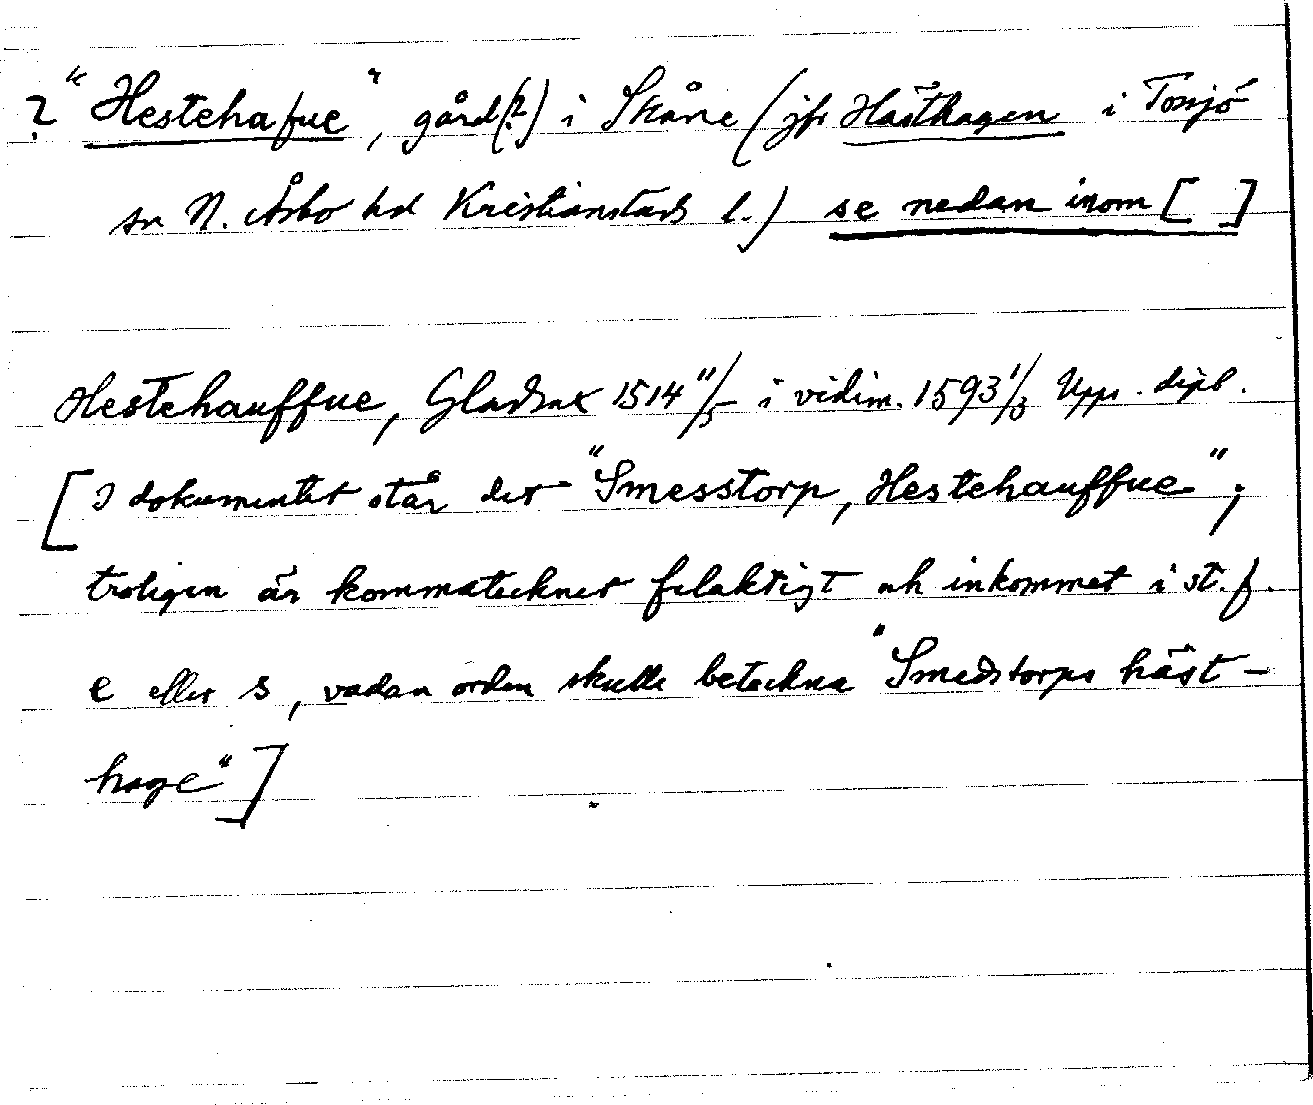 ? "Hestehafue", gård(?) i Skåne (jfr Hästhagen i Tossjö
sn N. Åsbo hd Kristianstads l.) se nedan inom [ ]
Hestehauffue, Gladsax 1514 11/5 i vidim. 1593 1/3 Upps. dipl.
[I dokumentet står det "Smesstorp, Hestehauffue";
troligen är kommatecknet felaktigt och inkommet i st. f.
e eller s, vadan orden skulle beteckna "Smedstorps häst-
hage"]